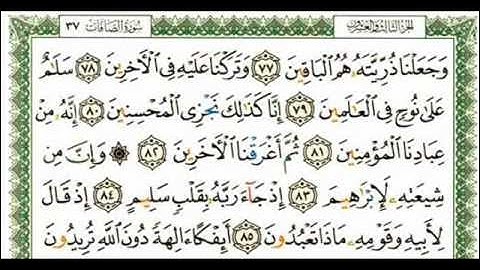 سورة الصافات ٣٧ الجزء الثالث والعشرون
وَجَعَلْنَا ذُرِّيَّتَهُۥ هُمُ ٱلْبَاقِينَ ٧٧ وَتَرَكْنَا عَلَيْهِ فِى ٱلْأَخِرِينَ ٧٨ سَلَٰمٌ
عَلَىٰ نُوحٍ فِى ٱلْعَٰلَمِينَ ٧٩ إِنَّا كَذَٰلِكَ نَجْزِى ٱلْمُحْسِنِينَ ٨٠ إِنَّهُۥ مِنْ
عِبَادِنَا ٱلْمُؤْمِنِينَ ٨١ ثُمَّ أَغْرَقْنَا ٱلْأَخَرِينَ ٨٢ ۞ وَإِنَّ مِن
شِيعَتِهِۦ لَإِبْرَٰهِيمَ ٨٣ إِذْ جَآءَ رَبَّهُۥ بِقَلْبٍ سَلِيمٍ ٨٤ إِذْ قَالَ
لِأَبِيهِ وَقَوْمِهِۦ مَاذَا تَعْبُدُونَ ٨٥ أَئِفْكًا ءَالِهَةً دُونَ ٱللَّهِ تُرِيدُونَ